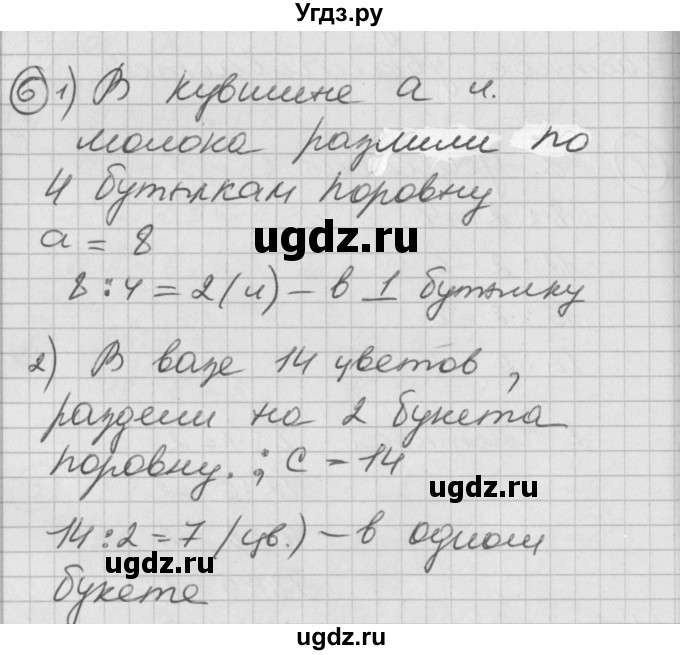 Угдз.ру
6 1) В кувшине а л.
молока разлили по
4 бутылкам поровну
а = 8
ugdz.ru
8 : 4 = 2 (л) – в 1 бутылку
2) В вазе 14 цветов,
раздели на 2 букета
поровну. ; с = 14
ugdz.ru
14 : 2 = 7 (цв.) – в одном
ugdz.ru
букете
ugdz.ru